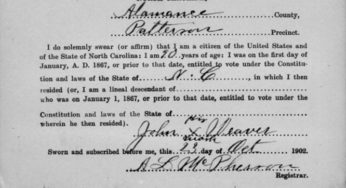 Alamance County,
Patterson Precinct.
I do solemnly swear (or affirm) that I am a citizen of the United States and
of the State of North Carolina: I am 70 years of age: I was on the first day of
January, A. D. 1867, or prior to that date, entitled to vote under the Constitu-
tion and laws of the State of N. C, in which I then
resided (or, I am a lineal descendant of
who was on January 1, 1867, or prior to that date, entitled to vote under the
Constitution and laws of the State of
wherein he then resided).
his
John X Weaver
mark
Sworn and subscribed before me, this 23 day of Oct 1902.
A L McPherson
Registrar.